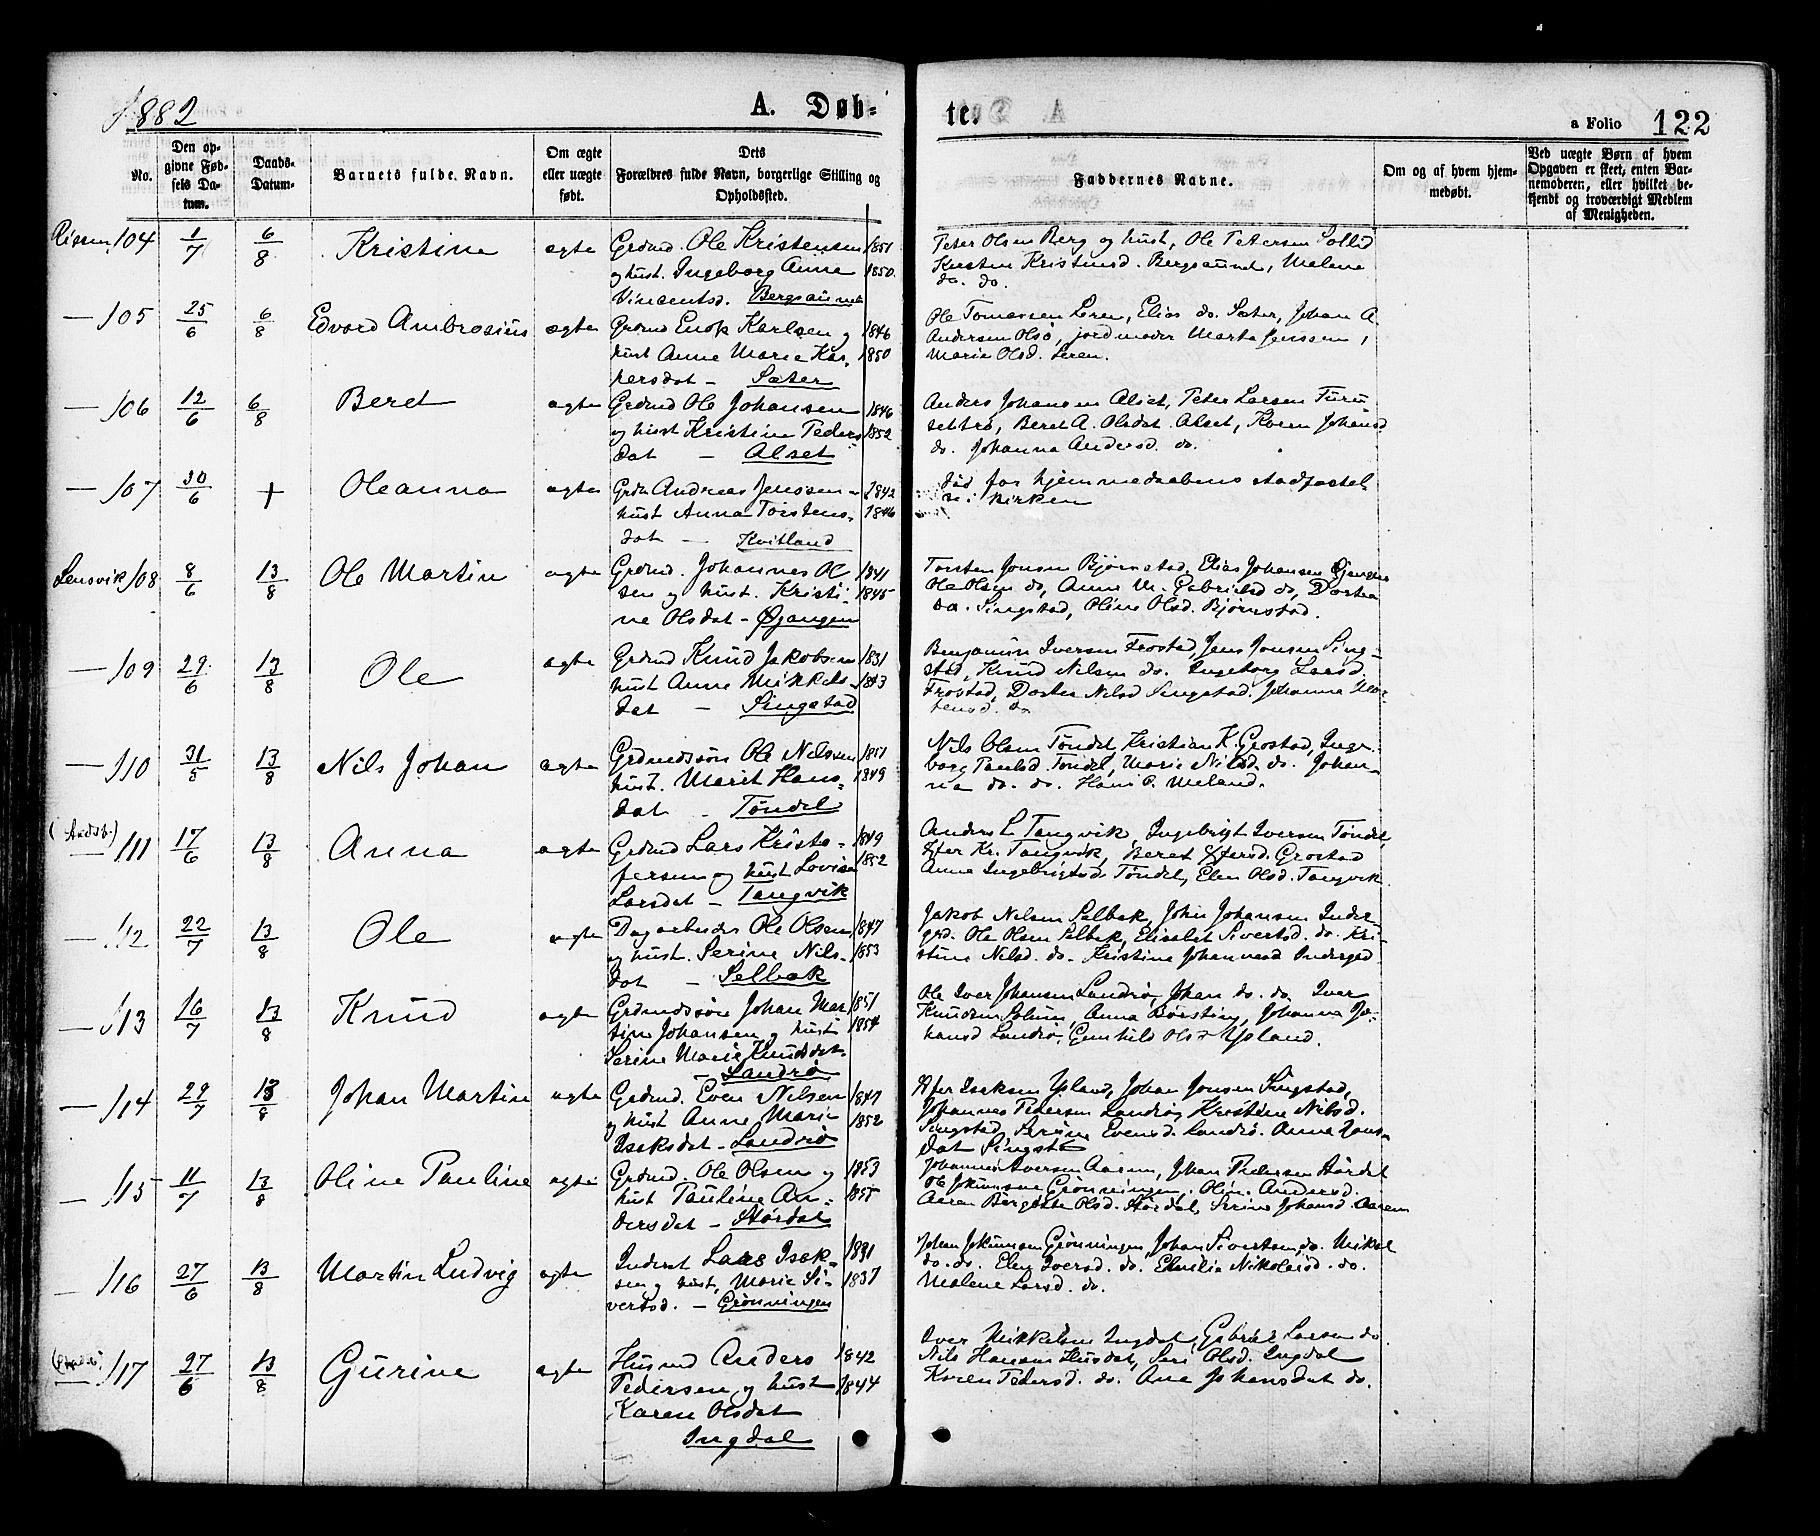 1882
A. Døb-
te.
a Folio 122
No.
Den op-
givne Fød-
sels Da-
tum.
Daabs-
Datum.
Barnets fulde Navn.
Om ægte
eller uægte
født.
Dets
Forældres fulde Navn, borgerlige Stilling og
Opholdssted.
Faddernes Navne.
Om og af hvem hjem-
medøbt.
Ved uægte Børn af hvem
Opgaven er skeet, enten Bar-
nemoderen, eller hvilket be-
kjendt og troværdigt Medlem
af Menigheden.
Rissen 104 1/7 6/8 Kristine ægte Grdmd. Ole Kristensen 1851
og hust. Ingeborg Anna 1850
Vincentsd. Bergsaunet
Peter Olsen Berg og hust, Ole Petersen Sollid
Kirsten Kristensd. Bergsaunet, Malene
do. do.
— 105 25/6 6/8 Edvard Ambrosius ægte Grdmd Enok Karlsen og 1846
hust Anne Marie Kas- 1850
persdat — Sæter
Ole Tomassen Leren, Elias do. Sæter, Johan A
Andersen Olsø, jordmoder Marta Jenssen,
Marie Olsd. Leren.
— 106 12/6 6/8 Beret ægte Grdmd Ole Johansen 1846
og hust Kristine Peders 1852
dat — Alset
Anders Johansen Alset, Peter Larsen Furu-
settrø, Beret A. Olsdat. Alset, Karen Johansd
do. Johanna Andersd. do.
— 107 30/6 + Oleanna ægte Grdm Andreas Jenssen 1842
hust Anna Torstens- 1846
dat — Kvitland
død før hjemmedaabens stadfæstel-
se i kirken
Lensvik 108 8/6 13/8 Ole Martin ægte Grdmd. Johannes Ol 1841
sen og hust. Kristi- 1845
ne Olsdat — Øjangen
Torsten Jonsen Bjørnstad, Elias Johansen Øjangen
Ole Olsen do, Anne M. Gabrielsd do, Dortea
do. Singstad, Oline Olsd. Bjørnstad.
— 109 29/6 13/8 Ole ægte Grdmd Knud Jakobsen 1831
hust Anne Mikkels- 1843
dat — Singstad
Benjamin Iversen Frostad, Jens Jonsen Sing-
stad, Knud Nilsen do. Ingeborg Larsd,
Frostad, Dortea Nilsd Singstad. Johanna
tensd. do
— 110 31/5 13/8 Nils Johan ægte Grdmdssøn Ole Nilssen 1851
hust. Marit Hans- 1849
dat — Tøndel
Nils Olsen Tøndel, Kristian K. Grostad, Inge-
borg Paulsd. Tøndel, Marie Nilsd. do. Johan-
na do. do. Hans P. Meland.
— 111 17/6 13/8 Anna ægte Grdmd Lars Kristo- 1849
fersen og hust Lovise 1852
Larsdat — Tangvik
Anders L Tangvik, Ingebrigt Iversen Tøndel,
Kr. Tangvik, Beret Grostad
Anne Ingebrigtsd. Tøndel, Elen Olsd. Tangvik
— 112 22/7 13/8 Ole ægte Dagarbeider Ole Olsen 1847
og hust. Serine Nils- 1853
dat — Selbæk
Jakob Nilsen Selbæk, John Johansen Inder-
grd. Ole Olsen Selbæk, Elisabet Sivertsd. do. Kri-
stine Nilsd. do. Kristine Johannesd Indergrd
— 113 16/7 13/8 Knud ægte Grdmdssøn Johan Mar- 1851
tin Johansen og hust 1854
Serine Marie Knudsdat-
— Landrø
Ole Iver Johansen Landrø, Johan do. do. Iver
Knudsen Solum, Anna Børsting, Johanna Jo-
hansd Landrø, Gunhild Olsd Ysland.
— 114 29/7 13/8 Johan Martin ægte Grdmd. Even Nilsen 1847
og hust Anne Marie 1852
Isaksdat — Landrø
Isaksen Ysland, Johan Jonsen Singstad,
Johannes Petersen Landrø, Kristine Nilsd.
Singstad, Serine Evensd. Landrø. Anna Jons-
dat Singstad
— 115 11/7 13/8 Oline Pauline ægte Grdmd. Ole Olsen og 1853
hust Pauline An- 1855
dersdat — Størdal
Johannes Iversen Aarem, Johan Pedersen Størdal
Ole Jokumsen Grønningen, Oline Andersd.
Aaren Bergitte Olsd. Størdal, Serine Johansd. Aarem
— 116 27/6 13/8 Martin Ludvig ægte Inderst Lars Isak- 1831
sen og hust, Marie Si- 1837
vertsd. — Grønningen
Johan Jokumsen Grønningen, Johan Sivertsen do. Mikal
do. do. Elen Iversd. do. Emilie Nikolaisd. do.
Malene Larsd. do.
117 27/6 13/8 Gurine ægte Husmd Anders 1842
Pedersen og hust 1844
Karen Olsdat
Ingdal
Iver Mikkelsen Ingdal, Gabriel Larsen do
Nils Hansen Husdal, Seri Olsd. Ingdal
Karen Pedersd. do. Ane Johansdat do.